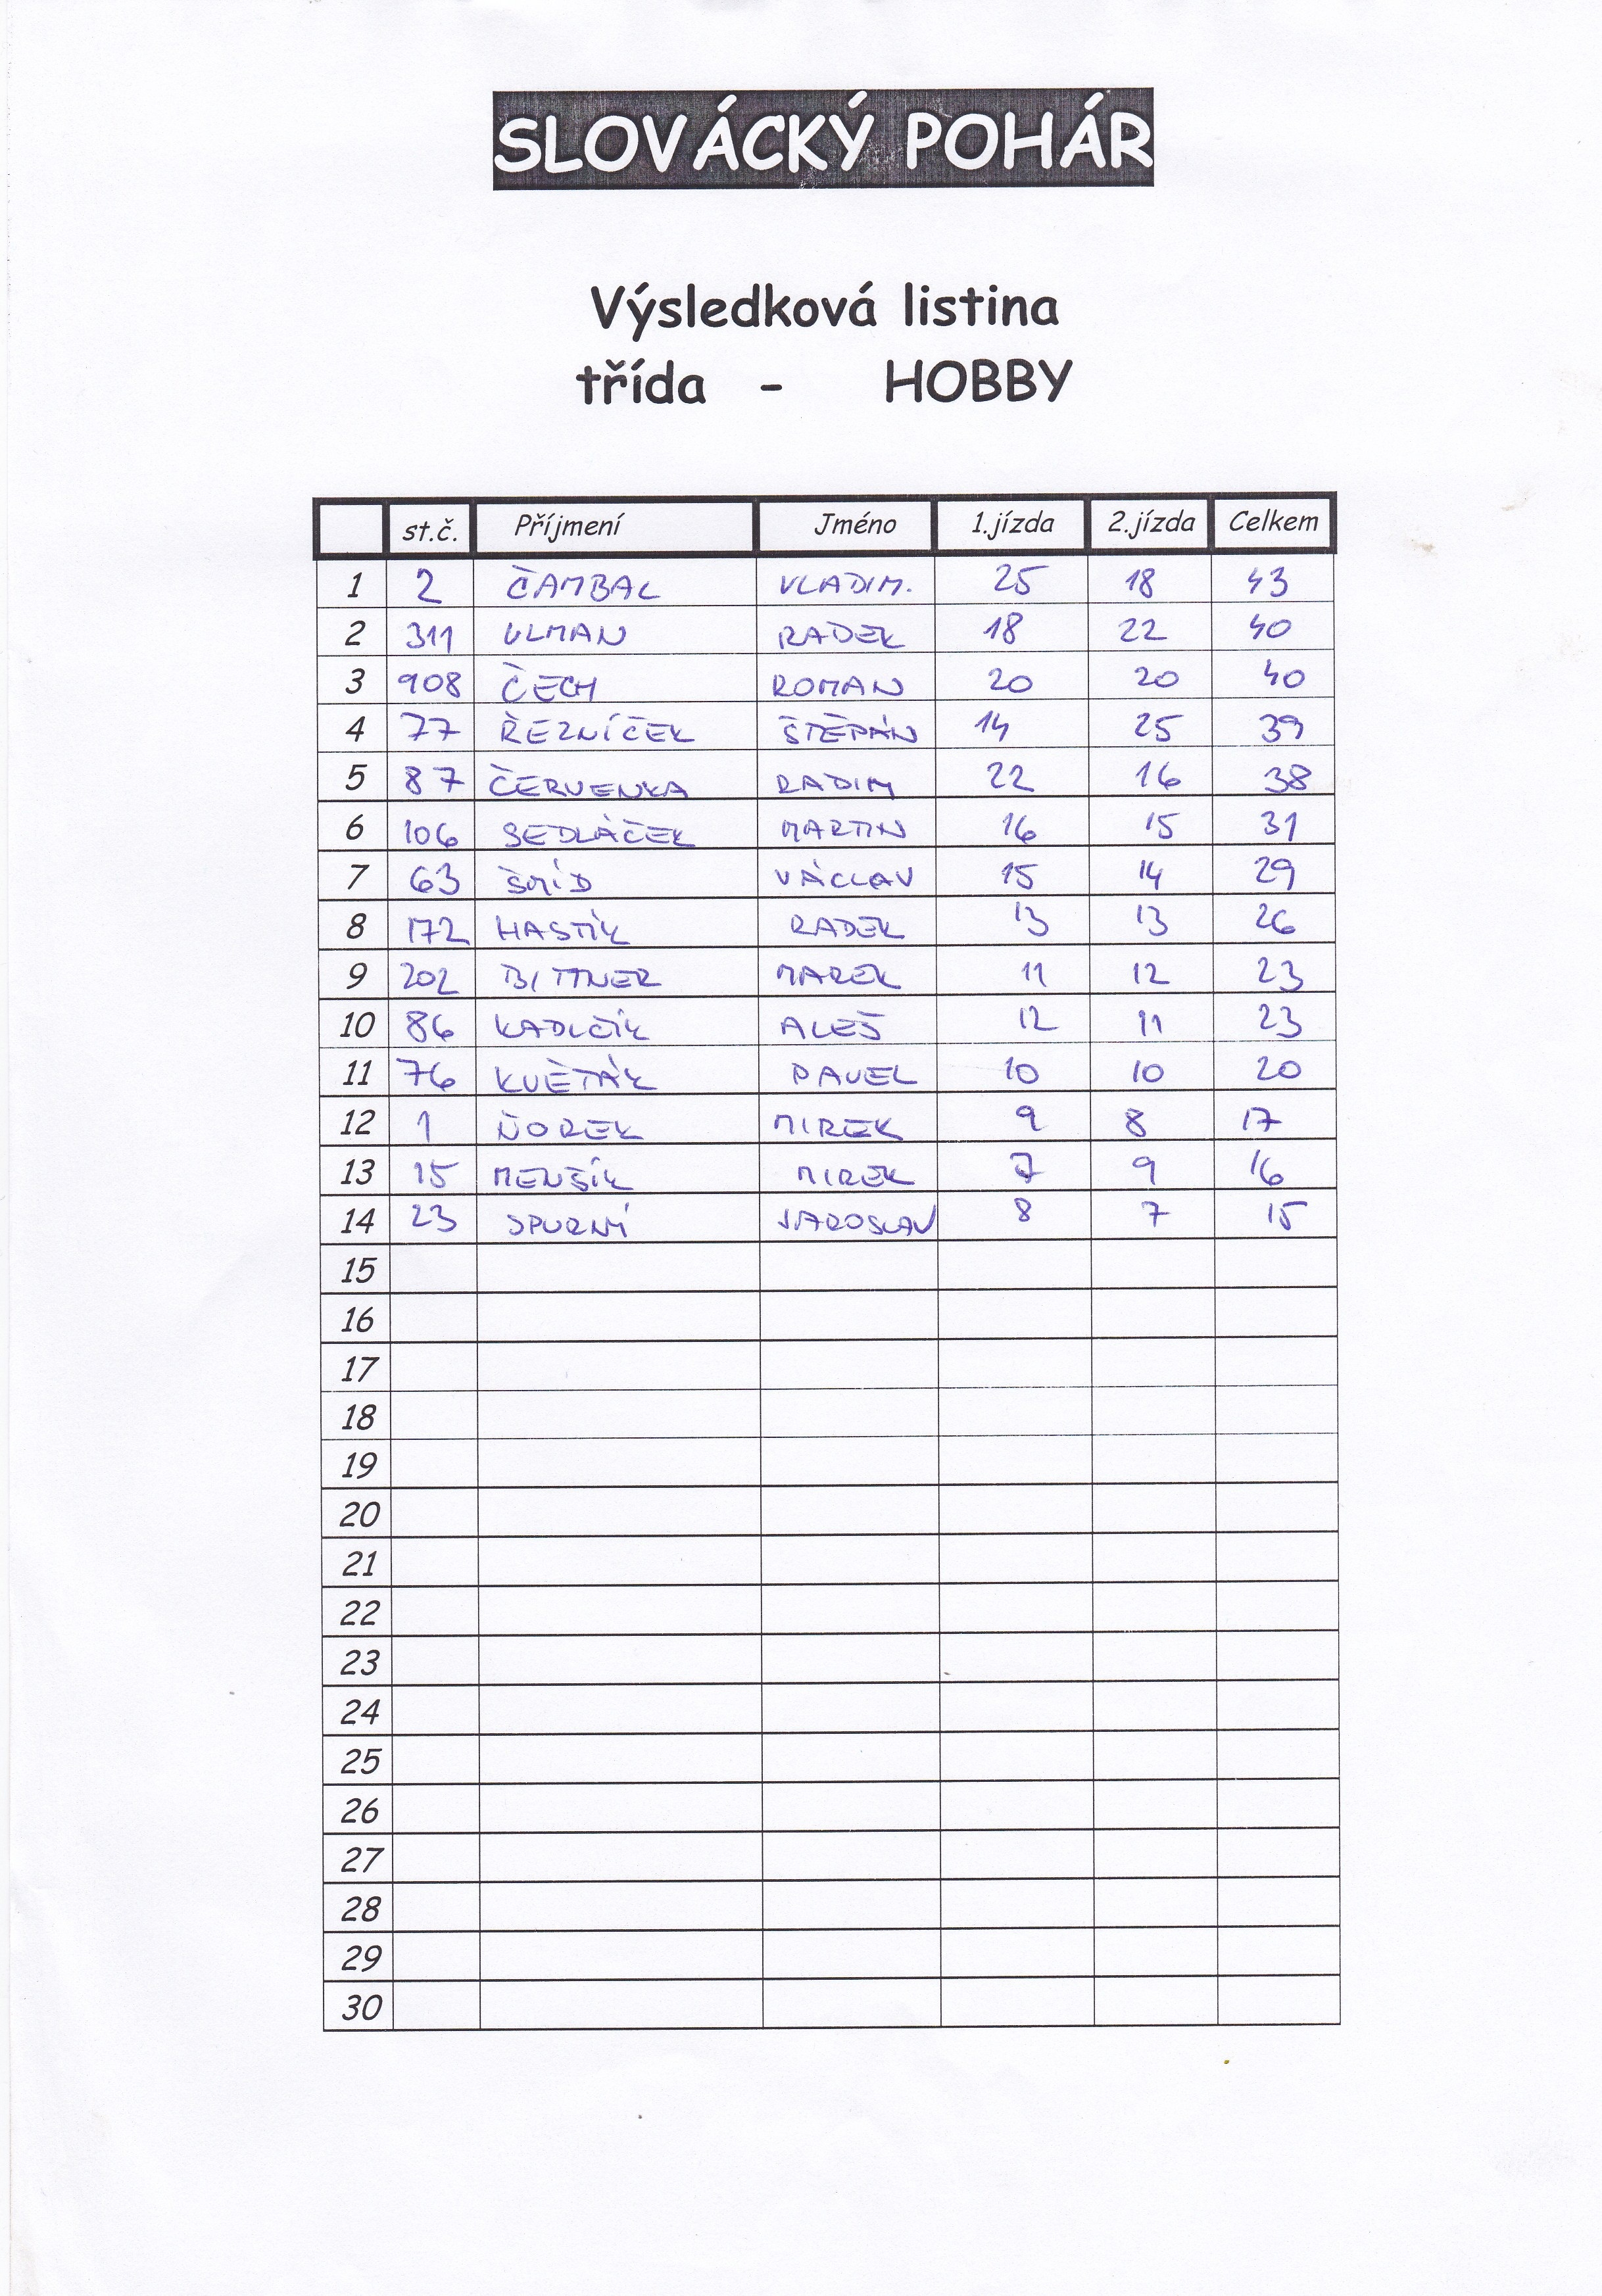 SLOVÁCKÝ POHÁR
Výsledková listina
třída - HOBBY
st.č. Příjmení Jméno 1.jízda 2.jízda Celkem
1 2 ČAMBAL VLADIM. 25 18 43
2 311 ULMAN RADEK 18 22 40
3 908 ČECH ROMAN 20 20 40
4 77 ŘEZNÍČEK ŠTĚPÁN 14 25 39
5 87 ČERVENKA RADIM 22 16 38
6 106 SEDLÁČEK MARTIN 16 15 31
7 63 ŠMÍD VÁCLAV 15 14 29
8 172 HASTÍK RADEK 13 13 26
9 202 BITTNER MAREK 11 12 23
10 86 KADLČÍK ALEŠ 12 11 23
11 76 KVĚTÁK PAVEL 10 10 20
12 1 ŇOREK MIREK 9 8 17
13 15 MENŠÍK MIREK 7 9 16
14 23 SPURNÝ JAROSLAV 8 7 15
15
16
17
18
19
20
21
22
23
24
25
26
27
28
29
30